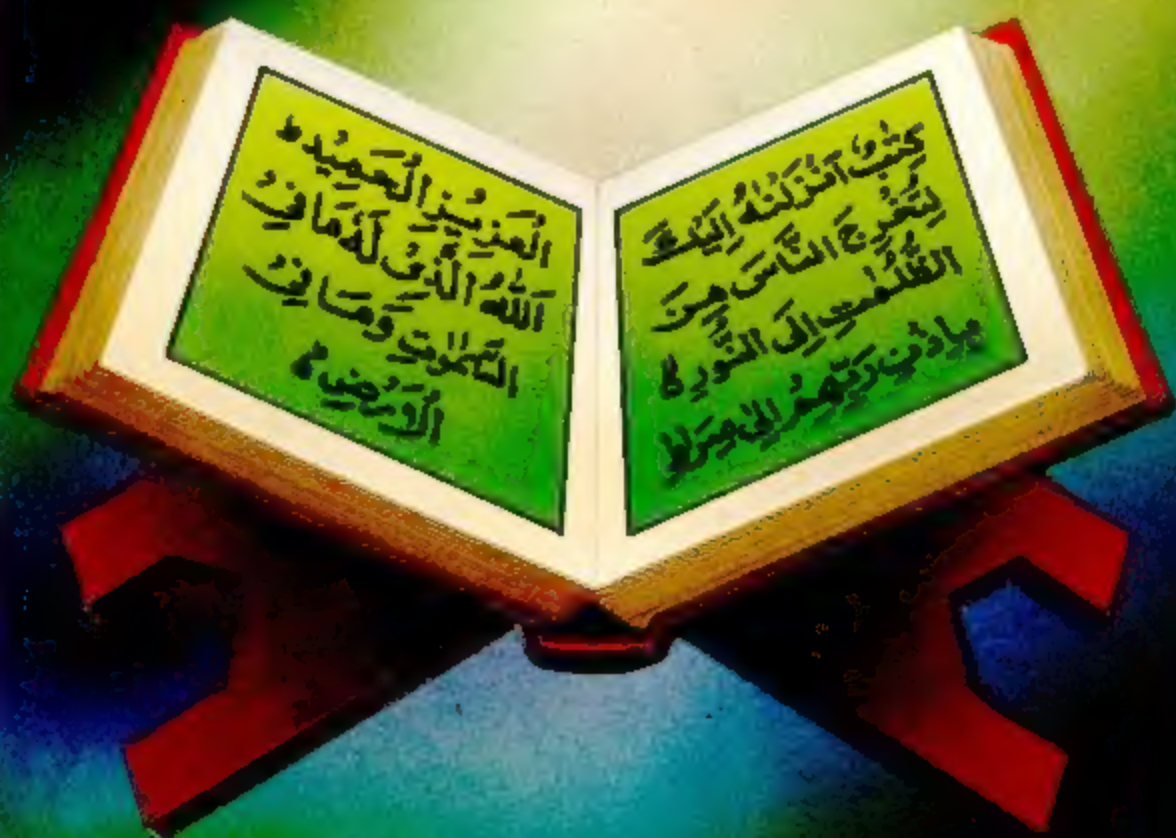 كِتٰبٌ اَنْزَلْنٰهُ اِلَيْكَ
لِتُخْرِجَ النَّاسَ مِنَ
الظُّلُمٰتِ اِلَى النُّوْرِ ۙ
بِاِذْنِ رَبِّهِمْ اِلٰى صِرَاطِ
الْعَزِيْزِ الْحَمِيْدِ ۙ
اللّٰهِ الَّذِىْ لَهٗ مَا فِى
السَّمٰوٰتِ وَمَا فِى
الْاَرْضِ ۚ